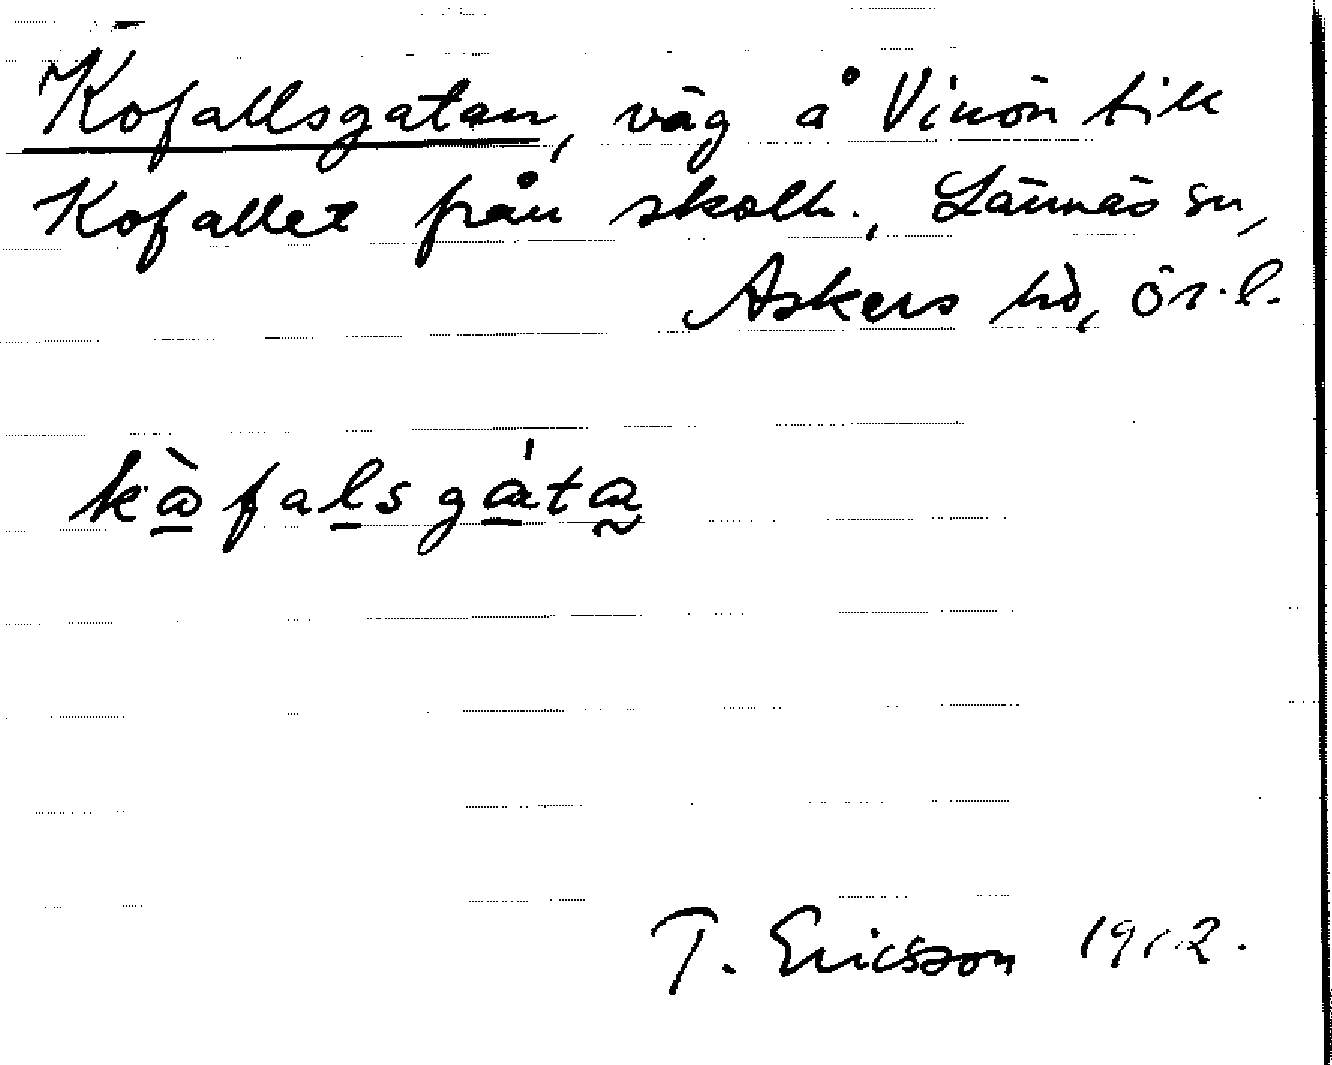 Kofallsgatan, väg å Vinön till
Kofallet från skolh., Lännäs sn,
Askers hd, ör. l.
kòfalsgáta
T. Ericsson 1912.